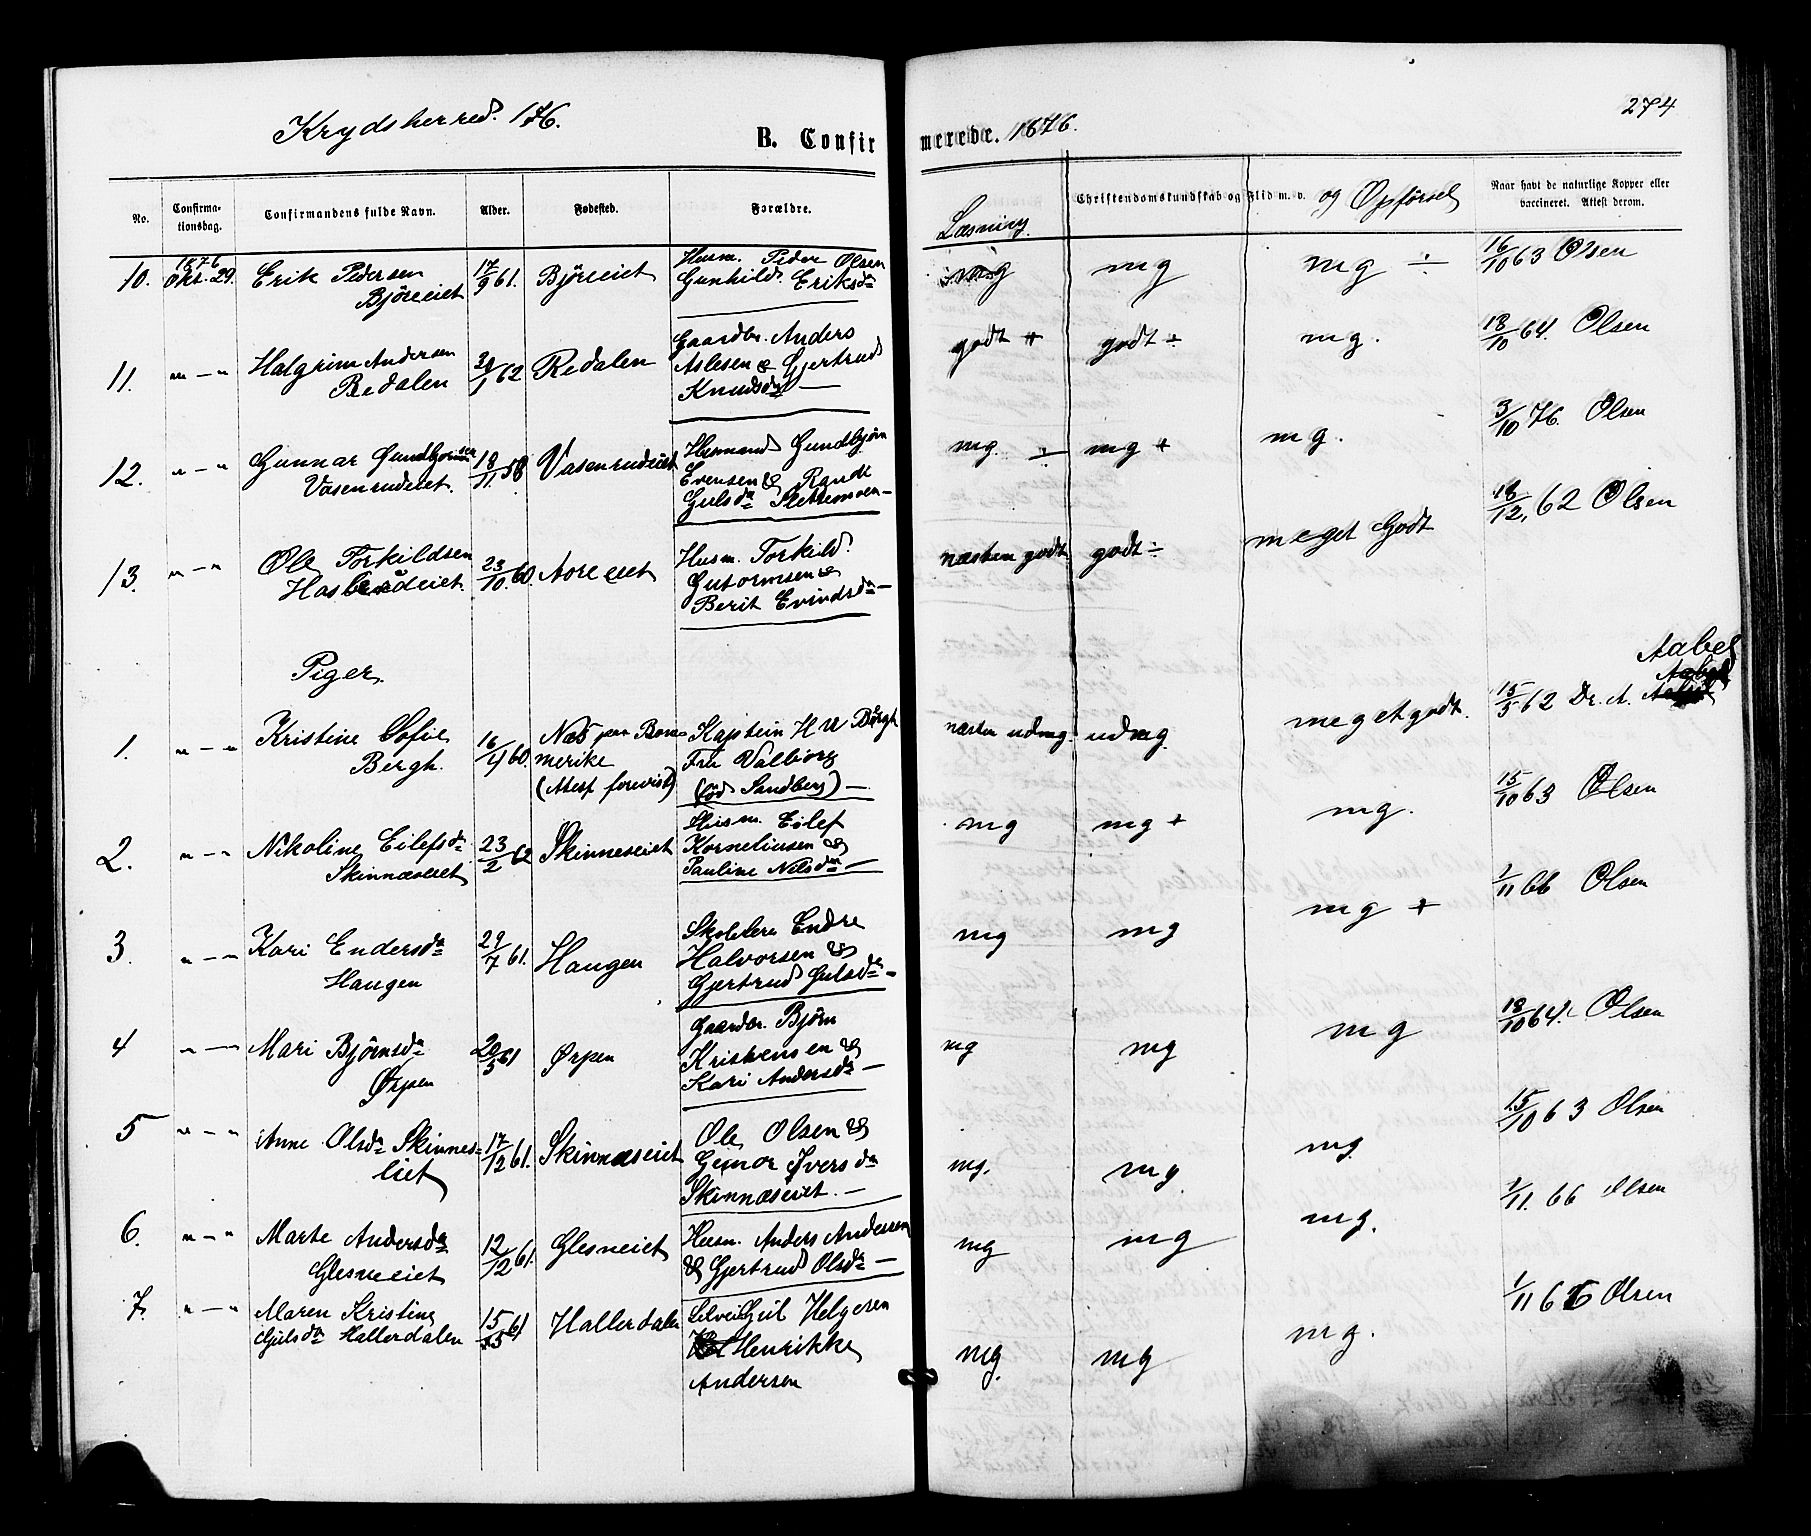 274
Krydsherred. 176.
B. Confirmerede. 1876.
No. Confirmationsdag. Confirmandens fulde Navn. Alder. Fødested. Forældre. Læsning Christendomskundskab og Flid m. v. og Opførsel Naar havt de naturlige Kopper eller vaccineret. Attest derom.
10. 1876 Okt. 29. Erik Pedersen 17/9 61. Björeeiet Husm. Peder Olsen mg mg mg ÷ 16/10 63 Olsen
Björeeiet Gunhild Eriksda
11. " — " Halgrim Andersen 30/1 62 Redalen Gaardbr. Anders godt + godt ÷ mg. 18/10 64. Olsen
Redalen Aslesen & Gjertrud
Knudsda —
12. " — " Gunnar Gundbjørnsen 18/11 58 Vasenrudeiet Husmand Gundbjørn mg. ÷ mg + mg. 3/10 76. Olsen
Vasenrudeiet. Evensen & Randi
Gulsda Slettemoen —
13. " — " Ole Torkildsen 23/10 60. Aoreeiet Husm. Torkild næsten godt godt ÷ meget Godt 18/12 62 Olsen
Haslerudeiet. Gutormsen &
Berit Evindsda —
Piger.
1. " — " Kristine Sofie 16/4 60. Næs paa Romerike Kaptein H N Bergh næsten udmg. udmg. meget godt. 15/5 62 Dr. A. Aabel
Bergh. (Attest forevist) Fru Valborg
(fød Sandberg) —
2. " — " Nikoline Eilefsda 23/2 62 Skinneseiet Husm. Eilef mg mg + mg. 15/10 63 Olsen
Skinnæseiet Korneliusen &
Pauline Nilsda —
3. " — " Kari Endersda 29/7 61. Haugen Skolelærer Endre mg mg mg + 1/11 66 Olsen
Haugen Halvorsen &
Gjertrud Gulsda —
4 " — " Mari Bjørnsda 20/5 61 Ørpen Gaardbr. Bjørn mg mg mg 18/10 64. Olsen
Ørpen Kristensen &
Kari Andersda —
5 " — " Anne Olsda Skinnes= 17/12 61. Skinnæseiet Ole Olsen & mg. mg. mg 15/10 63 Olsen
eiet Gunor Iversda
Skinnæseiet. —
6. " — " Marte Andersda 12/12 61. Glesneeiet Husm. Anders Andersen mg mg mg. 1/11. 66 Olsen
Glesneeiet & Gjertrud Olsda —
7. " — " Maren Kristine 15/5 61 Hallerdalen Selvei Gul Helgesen mg. mg mg. 1/11 66 Olsen
Gulsda Hallerdalen Henrikke
Andersen